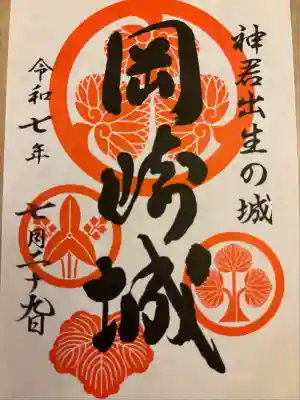 神君出生の城
岡崎城
令和七年
七月二十九日